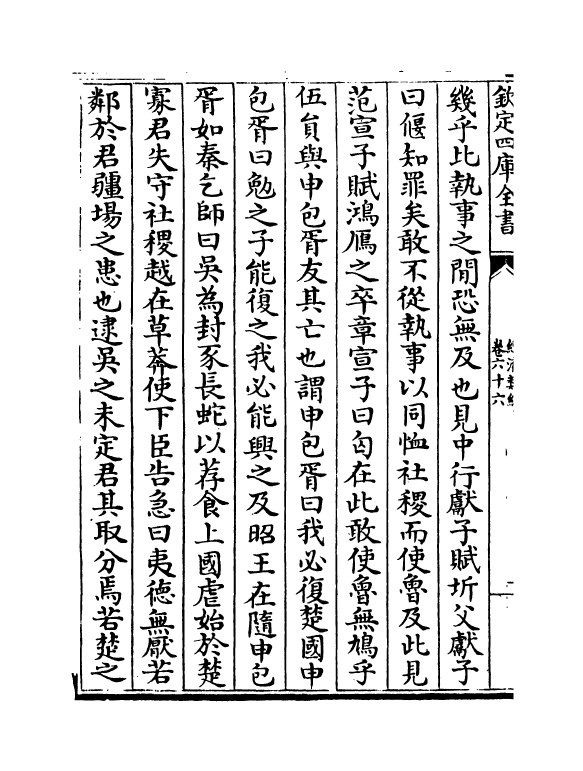 欽定四庫全書
卷六十六
幾乎比執事之閒恐無及也見中行獻子賦圻父獻子
曰偃知罪矣敢不從執事以同恤社稷而使魯及此見
范宣子賦鴻鴈之卒章宣子曰匄在此敢使魯無鳩乎
伍員與申包胥友其亡也謂申包胥曰我必復楚國申
包胥曰勉之子能復之我必能興之及昭王在隨申包
胥如秦乞師曰吳為封豕長蛇以荐食上國虐始於楚
寡君失守社稷越在草莽使下臣告急曰夷德無厭若
鄰於君疆埸之患也逮吳之未定君其取分焉若楚之